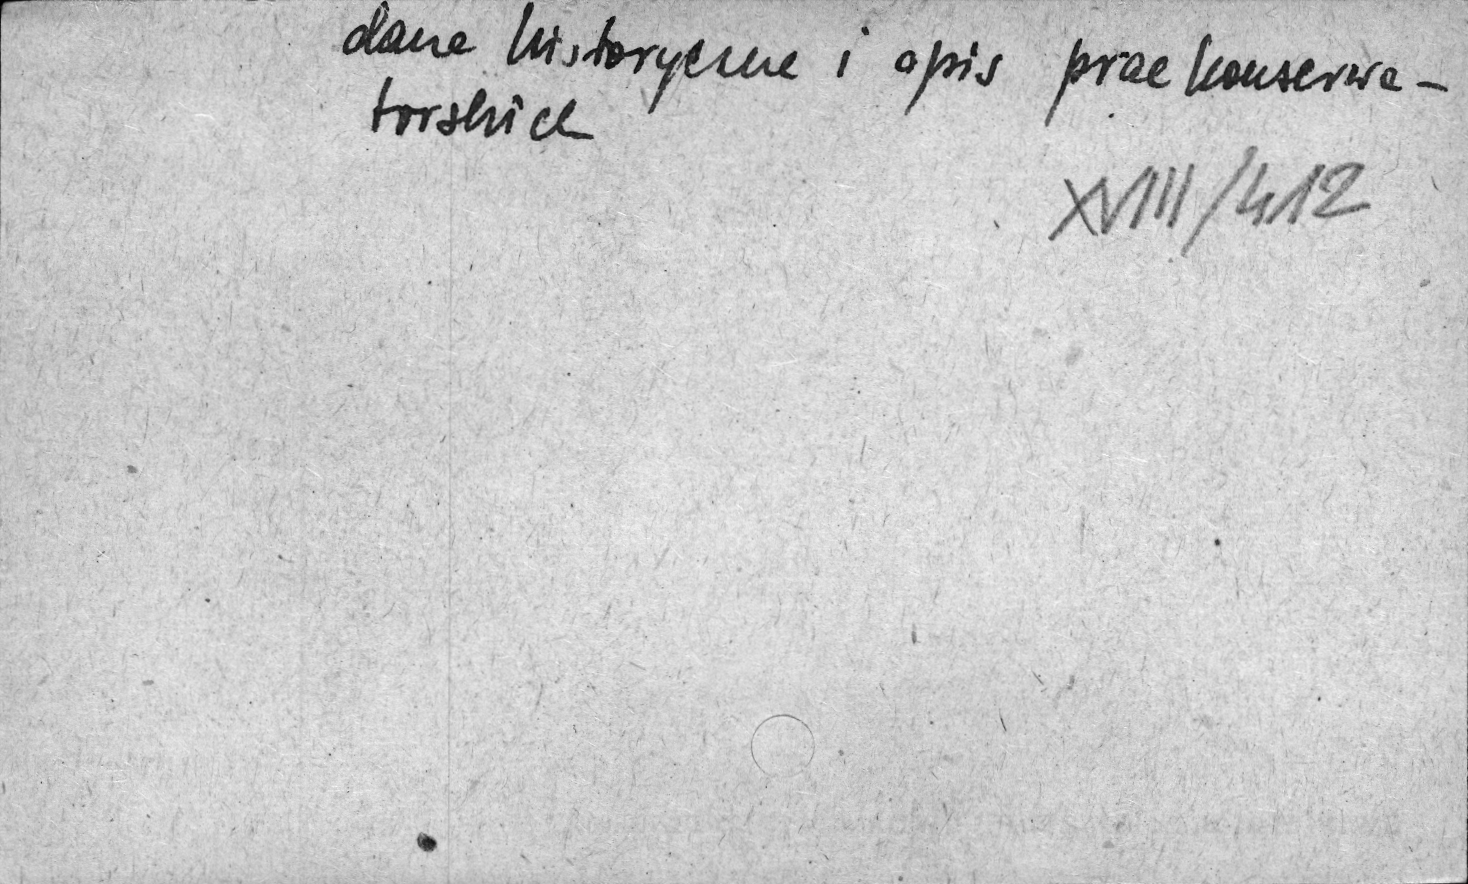 dane historyczne i opis prac konserwa-
torskich
XVIII/412